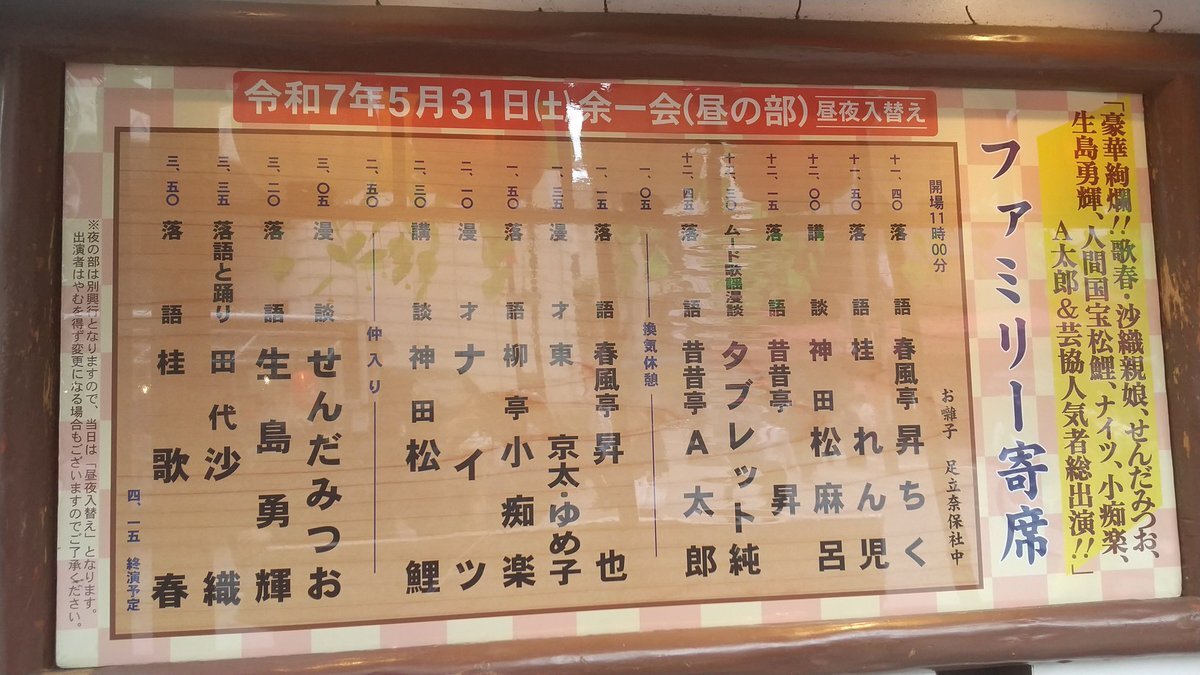 令和7年5月31日(土)余一会(昼の部) 昼夜入替え
「豪華絢爛!!歌春・沙織親娘、せんだみつお、
生島勇輝、人間国宝松鯉、ナイツ、小痴楽、
A太郎&芸協人気者総出演!!」
ファミリー寄席
お囃子 足立奈保社中
開場11時00分
十一、四〇 落語 春風亭昇ちく
十一、五〇 落語 桂れん児
十二、〇〇 講談 神田松麻呂
十二、一五 落語 昔昔亭昇
十二、三〇 ムード歌謡漫談 タブレット純
十二、四五 落語 昔昔亭A太郎
一、〇五 換気休憩
一、一五 落語 春風亭昇也
一、三五 漫才 東京太・ゆめ子
一、五〇 落語 柳亭小痴楽
二、一〇 漫才 ナイツ
二、三〇 講談 神田松鯉
二、五〇 仲入り
三、〇五 漫談 せんだみつお
三、二〇 落語 生島勇輝
三、三五 落語と踊り 田代沙織
三、五〇 落語 桂歌春
四、一五 終演予定
※夜の部は別興行となりますので、当日は「昼夜入替え」となります。
出演者はやむを得ず変更になる場合もございますのでご了承ください。